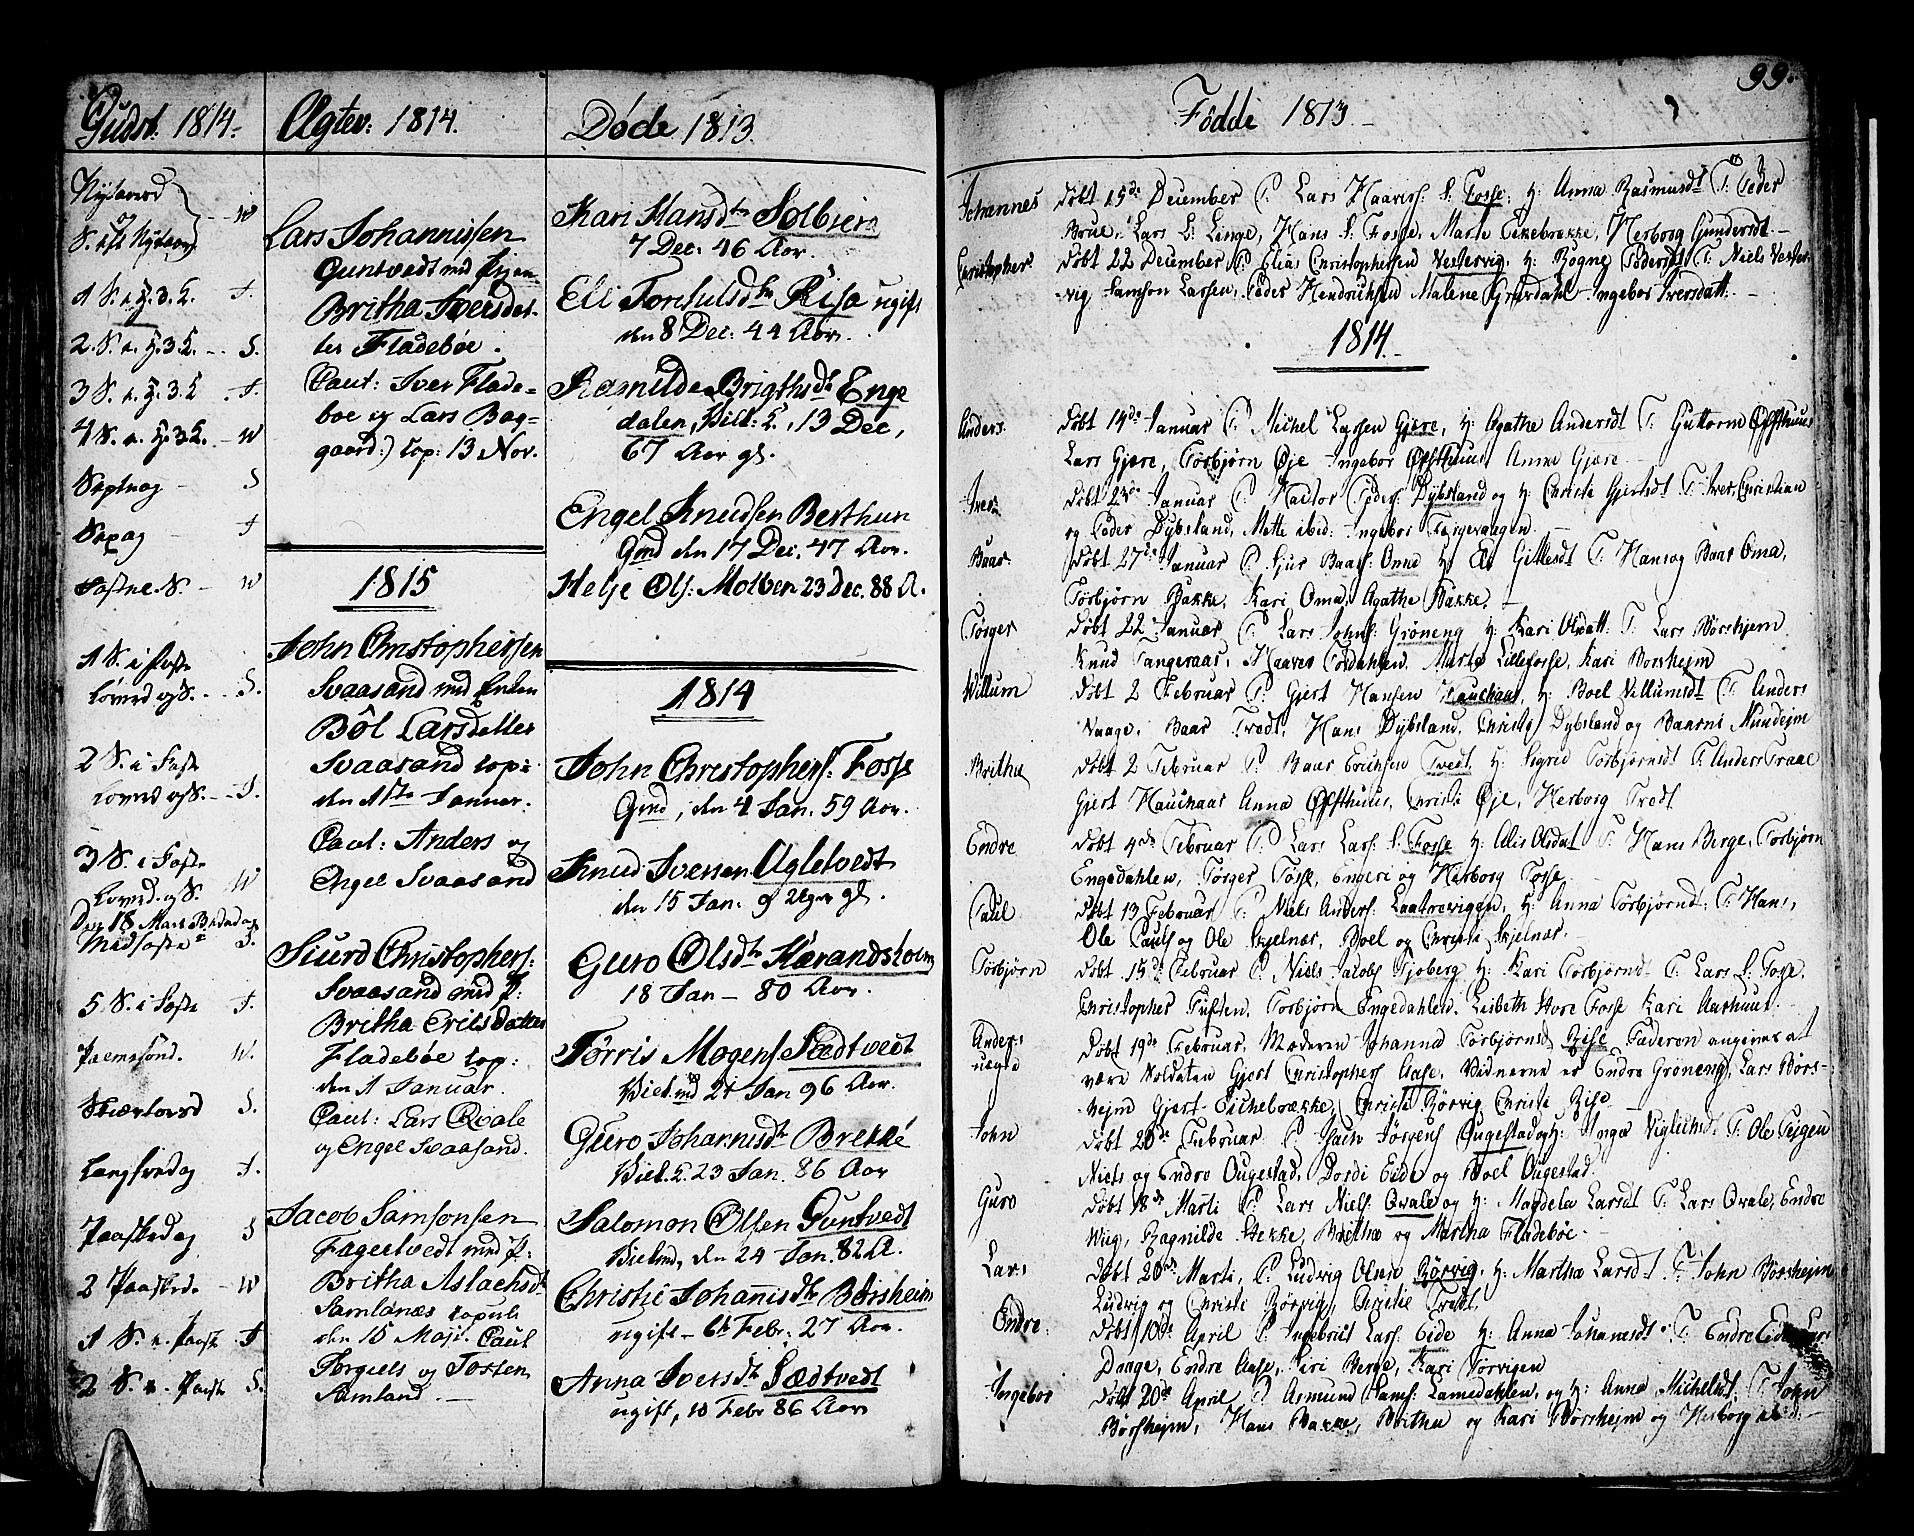 Gudst. 1814.
Nytaarsd
og
S. eft Nytaar - W
1 S. e. H. 3. K. - T.
2. S. e. H. 3 K. - S.
3 S. e. H. 3 K - T.
4 S. e. H. 3 K. - W
Septuag - S
Sexag - T
Faste. S. - W
1 S. i Faste
S.
2 S. i Faste
T.
3 S. i Faste
W
Den 18 Mart. Bededag
Midfaste S.
5 S. i Faste T.
Palmesønd. W.
Skiærtorsd S.
Langfredag T.
Paaskedag S
2 Paaskd. - W
1 S. e. Paaske T
2 S. e. Paaske S.
Ægtev: 1814.
Lars Johannissen
Guntvedt med Pigen
Britha Iversdat-
ter Fladebøe.
Caut: Iver Flade-
boe og Lars Bag-
gaard:) Cop: 13 Nov.
1815
John Christophersen
Svaasand med Enken
Bôl Larsdatter
Svaasand cop:
den 1ste Januer.
Caut: Anders og
Engel Svaasand
Siurd Christophers:
Svaasand med P:
Britha Erilsdatter
Fladebøe cop:
den 1 Januar.
Caut: Lars Qvale
og Engel Svaasand.
Jacob Samsonsen
Fagertvedt med P:
Britha Aslachsdr
Samlanæs copul:
den 15 Maji. Caut
Torgiels og Tosten
Samland.
Døde 1813.
Kari Hansdtr Solbierg
7 Dec. 46 Aar.
Eli Torchilsdtr Risa ugift
den 8 Dec: 44 Aar.
Ramilde Brigthsdtr Enge
dalen, 13 Dec,
67 Aar gl.
Engel Knudsen Berthun
Gmd den 17 Dec. 47 Aar.
Helje Ols: Molven 23 Dec. 88 A.
1814
John Christophers: Fosse
Gmd, den 4 Jan. 59 Aar.
Knud Iversen Ugletvedt
den 15 Jan. 9 Uger gl.
Guro Olsdtr Hærandsholm
18 Jan - 80 Aar.
Tørris Mogens Sædtvedt
21 Jan 96 Aar.
Guro Johannisdtr Brekke
23 Jan. 86 Aar
Salomon Olsen Guntvedt
den 24 Jan. 82 A.
Christie Johannisdtr Børsheim
ugift - 6te Febr. 27 Aar.
Anna Iversdtr Sædtvedt
ugift, 10 Febr 86 Aar
99.
Födde 1813
Johannes døbt 15de December P. Lars Haavers: S. Fosse. H: Anna Rasmusdt T: Peder
Brue, Lars L. Linge, Hans S. Fosse. Marte Eikebrække, Herborg Gundersdt.
Christopher døbt 22 December P. Elias Christophersen Vestervig. H: Rogne Pedersdt T: Niels Vester
vig Samson Larsen, Peder Hendrichsen Malene Gravdahl Ingebor Iversdatt.
1814
Anders døbt 14de Januar P. Michel Larsen Gjære, H: Agathe Andersdt T: Guttorm Øfsthuus
Lars Gjære, Torbjørn Øje Ingebor Øfsthuus Anna Gjære.
Iver døbt 23de Januar P. Hactor Peders: Dybsland og H: Christi Gjertsdt T: Iver, Christian
og Peder Dybsland, Mette ibid: Ingebor
Baar døbt 27de Januar P. Sjur Baars: Oma H: Eli Gitlesdt T: Hans og Baar Oma,
Torbjørn Bakke, Kari Oma, Agatha Bakke.
Torger døbt 22 Januar P. Lars Johns: Grôneng H: Kari Olsdatt. T: Lars Børshejm
Knud Tangeraas, Haaver Tordahlen. Marte Lillefosse, Kari Børshejm
Willum døbt 2 Februar P: Gjert Hansen Hauchaas H: Boel Villumsdt T: Anders
Vaage. Baar Trødt, Hans Dybsland, Christi Dybsland og Baarni Mundejm
Brithe døbt 2 Februar P. Baar Erichsen Tvedt, H: Sigrid Torbjørnsdt T: Anders Traae
Gjert Hauchaas Anna Øfsthuus, Christi Øje, Herborg Trødt
Endre døbt 4de Februar P: Lars Lars: S. Fosse H: Alis Olsdat T: Hans Berge, Torbjørn
Engedahlen, Torger Fosse, Engeri og Herborg Fosse
Paul døbt 13 Februar P. Niels Anders: Laatrevigen, H: Anna Torbjørnd: T: Hans,
Ole Pauls og Ole Skjelnæs, Boel og Christi Skjelnæs.
Torbjørn døbt 15de Februar P. Niels Jacobs Tjoberg H: Kari Torbjørnd: T: Lars S: Fosse,
Christopher Tuften, Torbjørn Engedahlen. Lisbeth Store Fosse Kari Aarhuus.
Anders
uegte døbt 19de Februar, Moderen Johanna Torbjørnsd: Rise Faderen angives at
være Soldaten Gjert Christophers Aase. Vidnerne er Endre Grôneng, Lars Børs-
hejm Gjert Eichebrække, Christi Rôrvig Christi Rise.
John døbt 20de Februar P. Jørgens Ougestad og H: Inga T: Ole Tejgen
Niels og Endre Ougestad, Dordi Eide og Boel Ougestad.
Guro døbt 18de Marti P. Lars Niels: Qvale og H: Magdela Larsdt T: Lars Qvale, Endre
Wiig, Ragnilde Bekke, Brithe og Martha Fladebøe.
Lars døbt 20de Marti, P. Ludvig Olsen Rôrvig, H: Martha Larsdt T: John Børshejm
Ludvig og Christi Rôrvig, Christie Trødt.
Endre døbt 10de April P. Ingebrict Lars: Eide H: Anna Johansdt T: Endre Eide
Drage, Endre Aase, Siri Berge, Kari Torvigen
Ingebor døbt 20de April P. Asmund Sams: Lamedahlen, og H: Anna Michelsdt T: John
Børshejm, Hans Bakke, Brithe og Kari Børshejm og Herborg ibid.